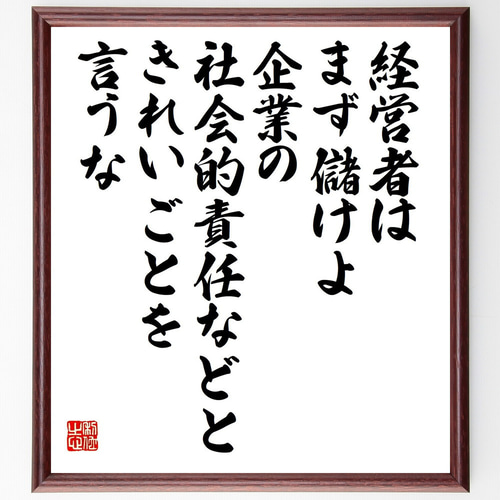 経営者は
まず儲けよ
企業の
社会的責任などと
きれいごとを
言うな